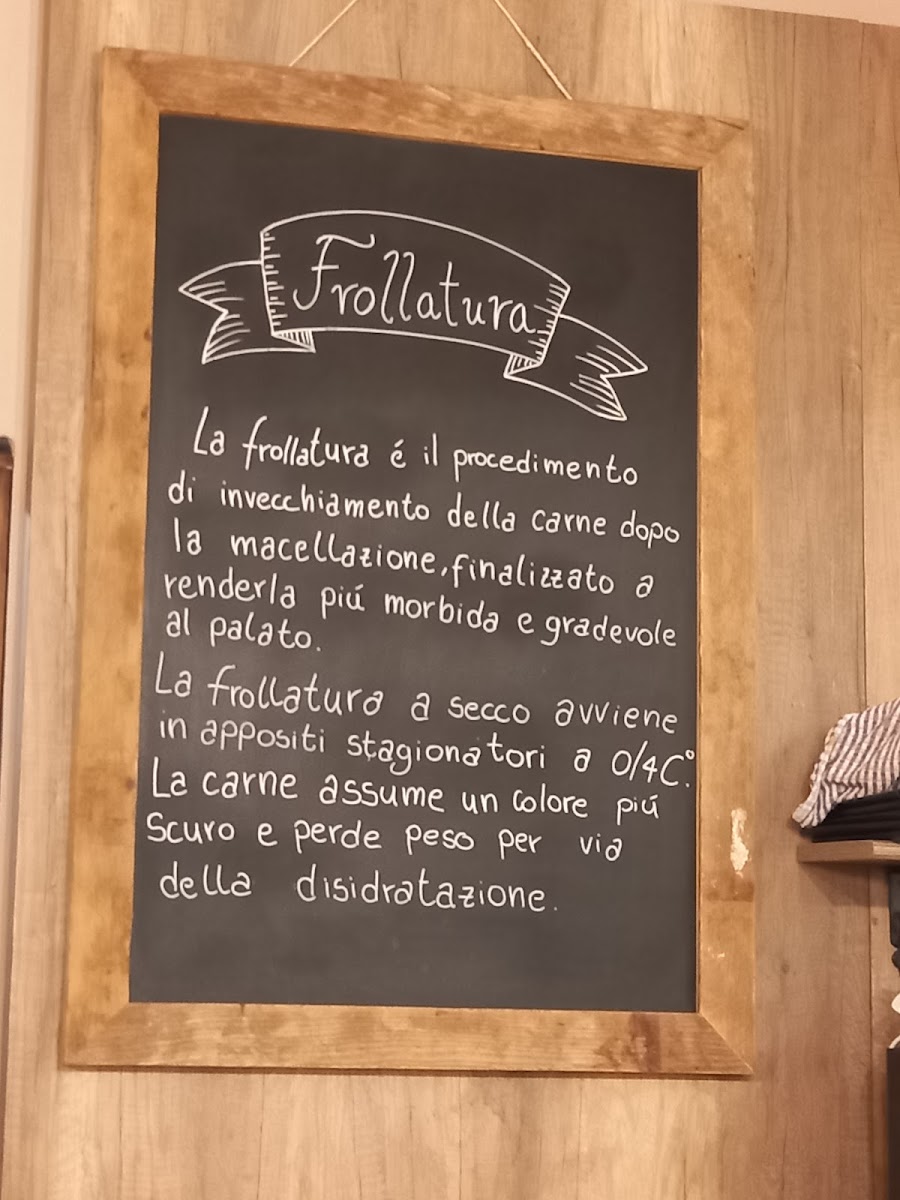 Frollatura
La frollatura é il procedimento
di invecchiamento della carne dopo
la macellazione, finalizzato a
renderla piú morbida e gradevole
al palato.
La frollatura a secco avviene
in appositi stagionatori a 0/4C°.
La carne assume un colore piú
scuro e perde peso per via
della disidratazione.